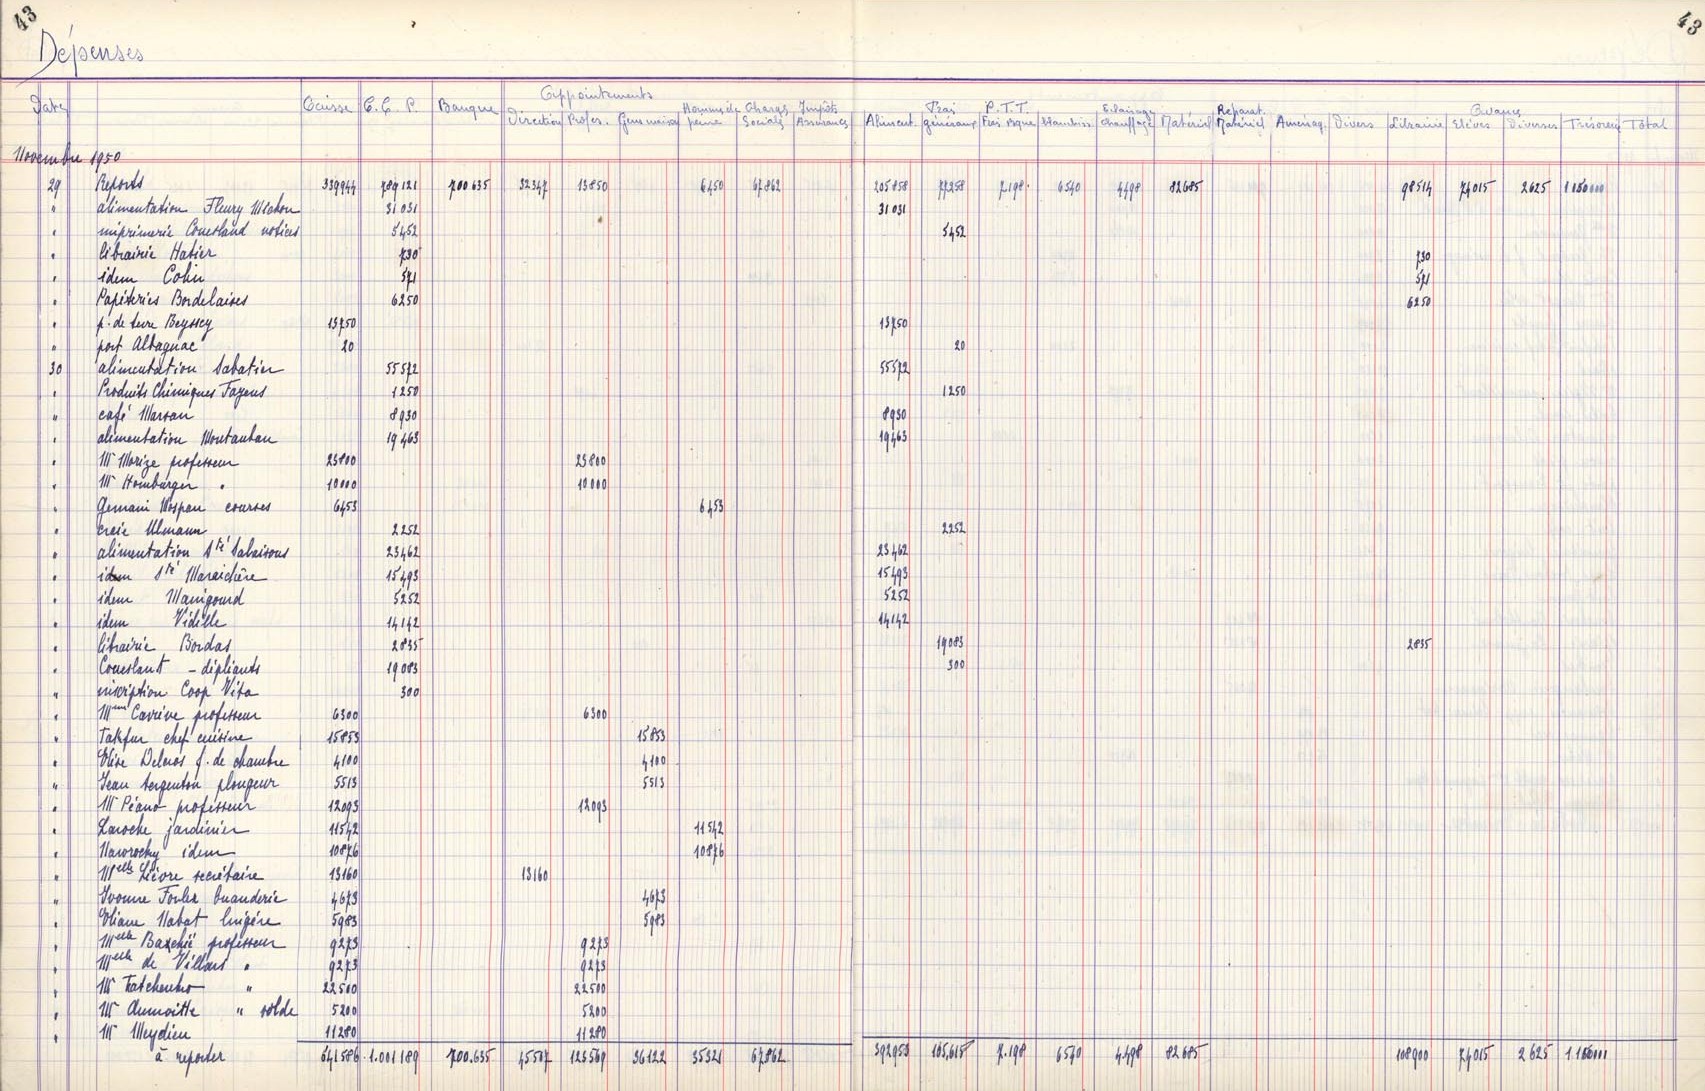 43 43
Dépenses
Appointements Avance
Date Caisse C.C.P. Banque Direction Profes. Gens maison Homme de peine Charges Sociales Impôts Assurances Aliment. Frais généraux P.T.T. Frais Banque Eclairage Chauffage Matériel Réparat. Matériel Aménag. Divers Librairie Elèves Diverses Trésorerie Total
Novembre 1950
29 Reports 339944 789121 700635 32347 13850 6450 67862 205858 77258 7198 6540 4498 82685 98514 74015 2625
" alimentation Fleury Michon 31031 31031
" imprimerie Couesland notices 5452 5452
" librairie Hatier 730 730
" idem Colin 571 571
" Papéteries Bordelaises 6250 6250
" p. de terre Beyssey 13750 13750
" port Albagnac 20 20
30 alimentation Sabatier 55572 55572
" Produits Chimiques Fayens 1250 1250
" café Marsan 8930 8930
" alimentation Montauban 19463 19463
" Mr Morize professeur 23800 23800
" Mr Homburger " 10000 10000
" Germain Vospan courses 6453 6453
" craie Ulmann 2252 2252
" alimentation Sté Salaisons 23462 23462
" idem Sté Maraichère 15493 15493
" idem Manigourd 5252 5252
" idem Vidille 14142 14142
" librairie Bordas 2835 19083 2835
" Coueslant - dépliants 19083 300
" inscription Coop Vita 300
" Mme Carrive professeur 6300 6300
" Takfur chef cuisine 15853 15853
" Elise Delcros f. de chambre 4100 4100
" Jean Sergenton plongeur 5513 5513
" Mr Péano professeur 12093 12093
" Laroche jardinier 11542 11542
" Nawrocky idem 10876 10876
" Melle Lièvre secrétaire 13160 13160
" Yvonne Foulex buanderie 4673 4673
" Eliane Nabat lingère 5983 5983
" Melle Bazehié professeur 9273 9273
" Melle de Villars " 9273 9273
" Mr Tatchenko " 22500 22500
" Mr Aumoitte " solde 5200 5200
" Mr Meydieu 11280 11280
à reporter 641586 1.001189 700.635 45507 123569 36122 35321 67862 392953 105,615 7.198 6540 4498 82685 108900 74015 2625